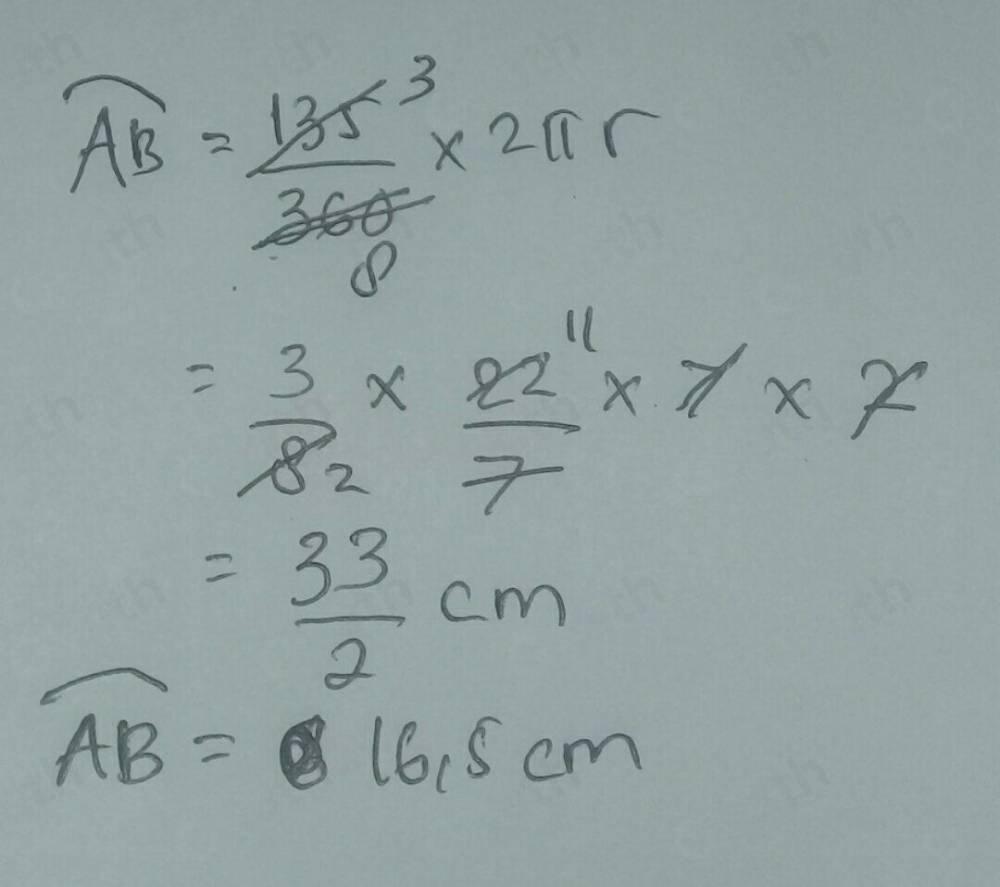 ⌒AB = 135/360 3/8 × 2πr
= 3/8 2 × 22/7 11 × 7 × 2
= 33/2 cm
⌒AB = 16,5 cm